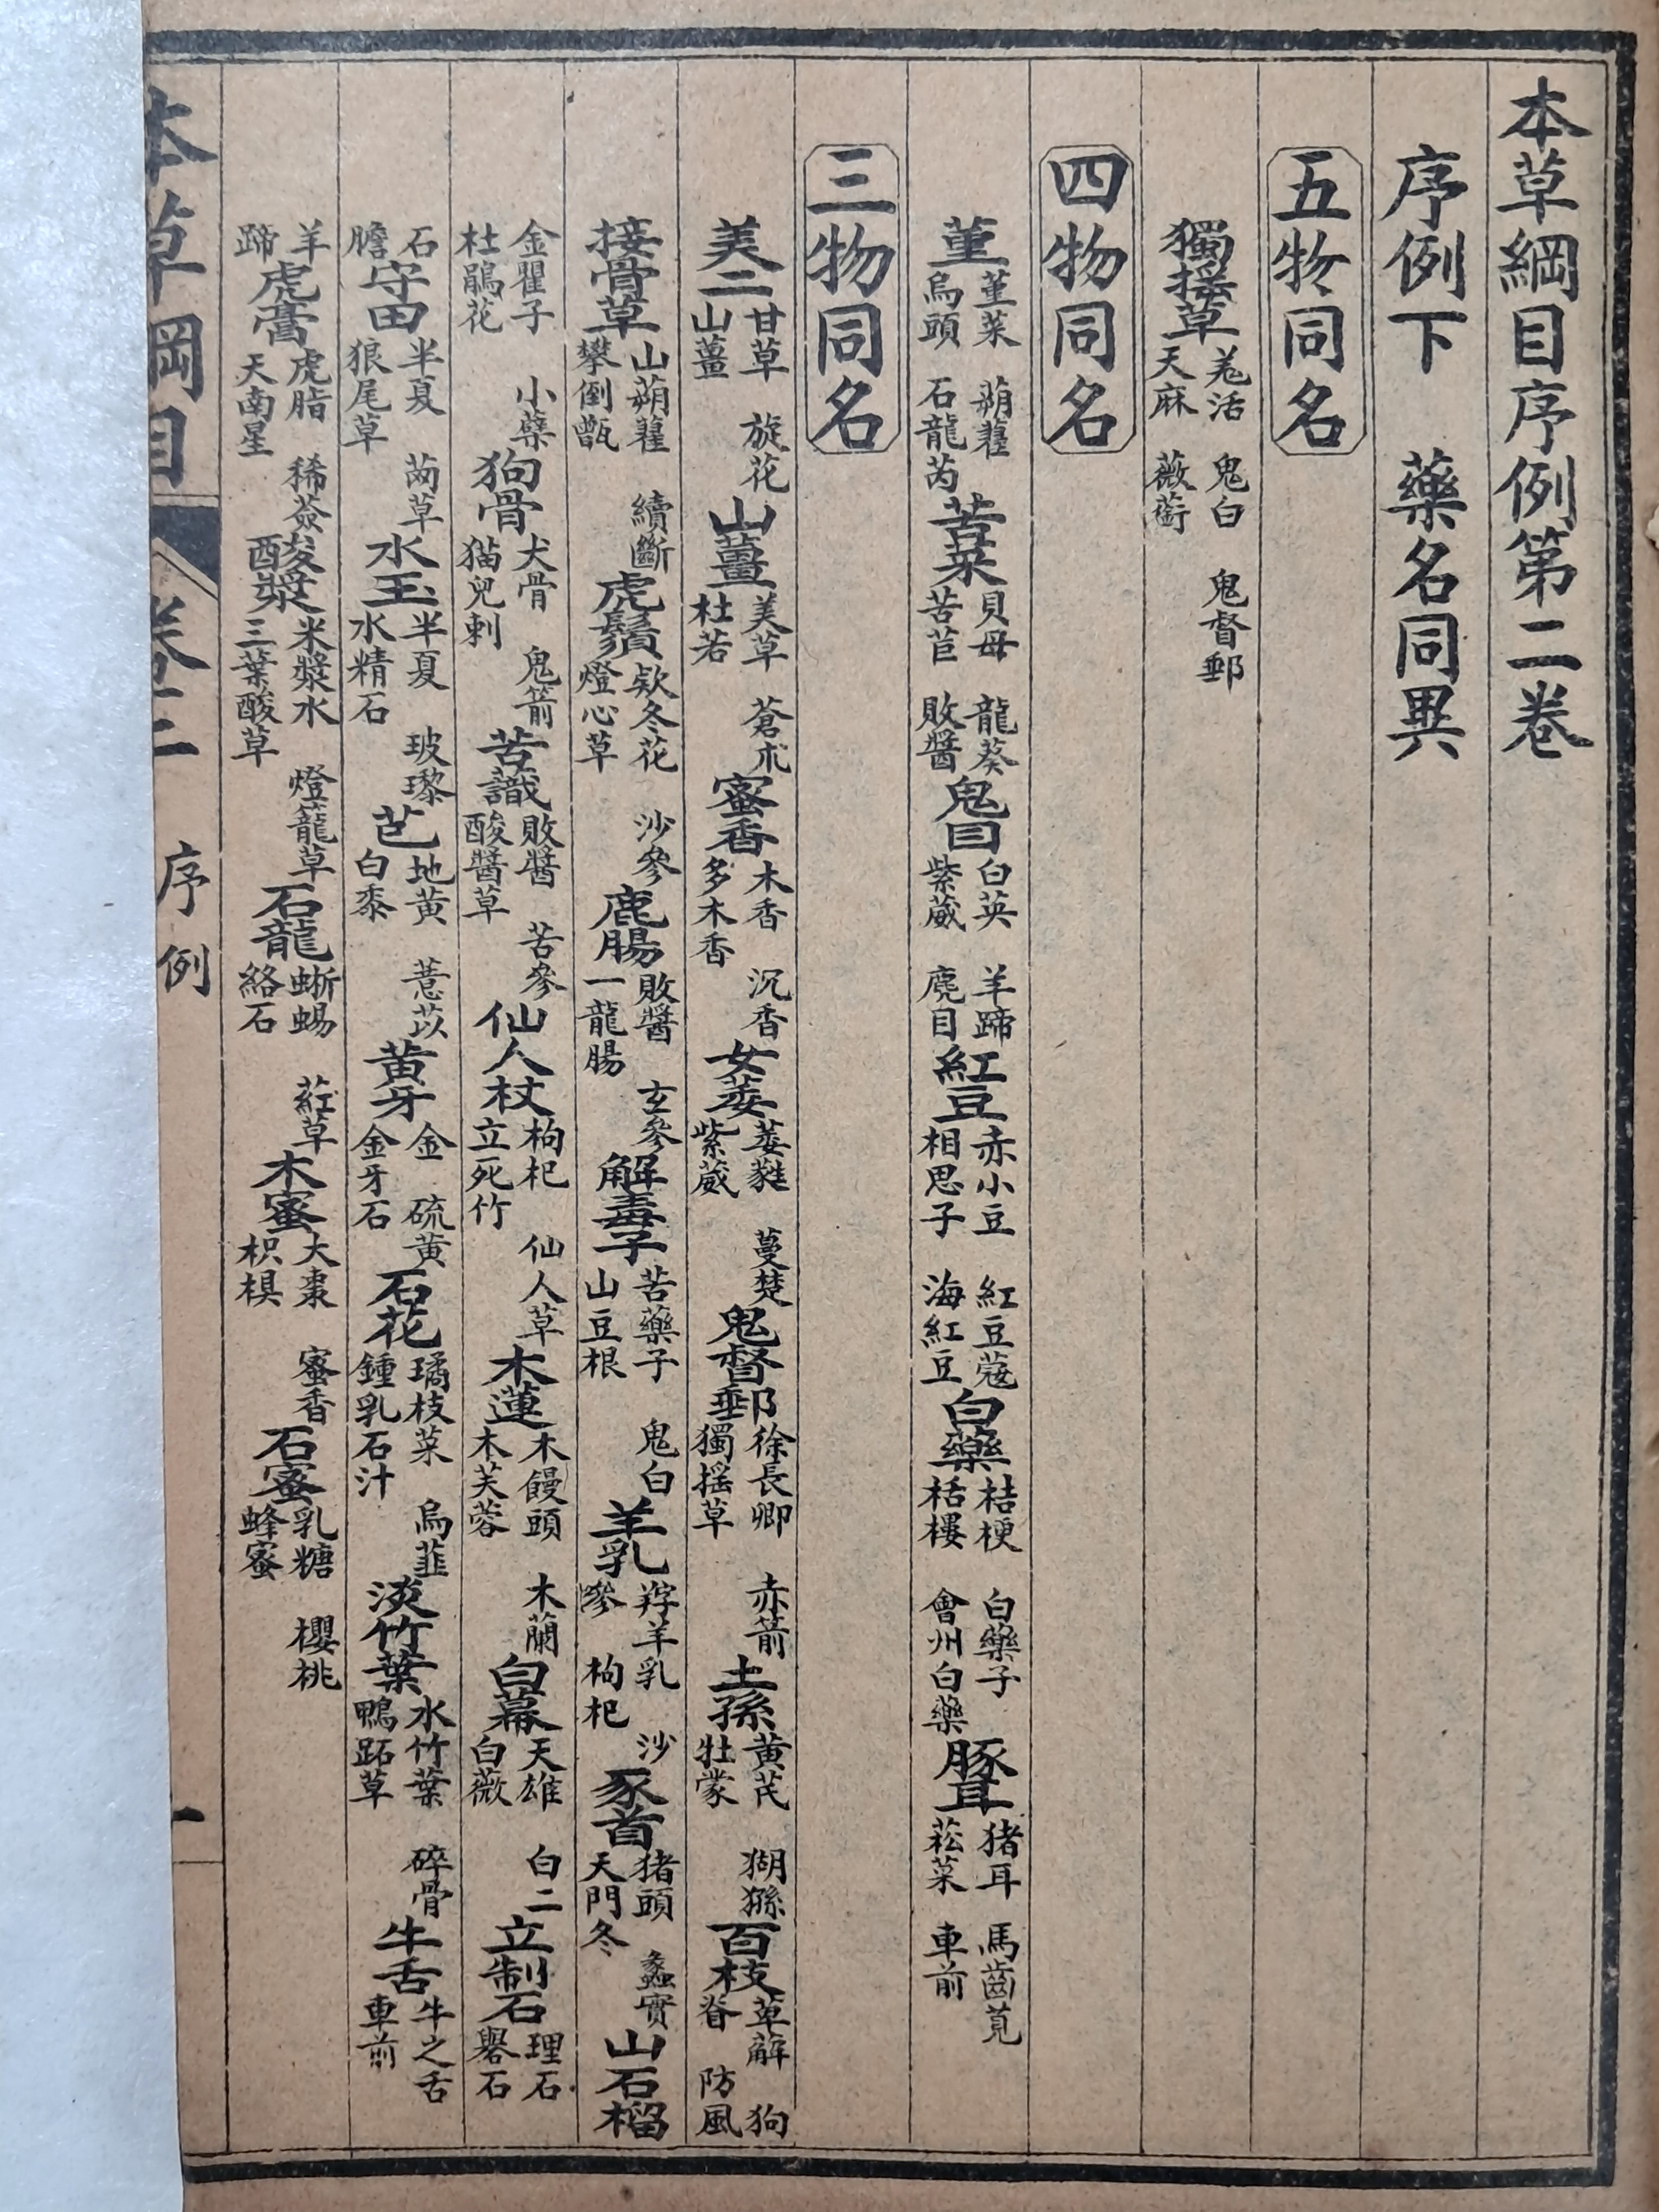 本草綱目序例第二卷
序例下　藥名同異
五物同名
獨搖草 羌活 鬼臼 鬼督郵 天麻 薇銜
四物同名
堇 堇菜 蒴藋 烏頭 石龍芮 苦菜 貝母 龍葵 苦苣 敗醬 鬼目 白英 羊蹄 紫葳 麂目 紅豆 赤小豆 紅豆蔻 相思子 海紅豆 白藥 桔梗 白藥子 栝樓 會州白藥 豚耳 猪耳 馬齒莧 菘菜 車前
三物同名
美二 甘草 旋花 山薑 山薑 美草 蒼朮 杜若 蜜香 木香 沉香 多木香 女萎 萎蕤 蔓楚 紫葳 鬼督郵 徐長卿 赤箭 獨搖草 土孫 黃芪 猢猻 牡蒙 百枝 萆薢 狗脊 防風
接骨草 山蒴藋 續斷 攀倒甑 虎鬚 欵冬花 沙參 燈心草 鹿腸 敗醬 玄參 一龍腸 解毒子 苦藥子 鬼臼 山豆根 羊乳 羜羊乳 沙參 枸杞 豕首 猪頭 蠡實 天門冬 山石榴
金罌子 小蘗 杜鵑花 狗骨 犬骨 鬼箭 猫兒刺 苦識 敗醬 苦參 酸醬草 仙人杖 枸杞 仙人草 立死竹 木蓮 木饅頭 木蘭 木芙蓉 白幕 天雄 白二 白薇 立制石 理石 礜石
石膽 守田 半夏 䓪草 狼尾草 水玉 半夏 玻瓈 水精石 芑 地黃 薏苡 白黍 黃牙 金 硫黃 金牙石 石花 璚枝菜 烏韭 鍾乳石汁 淡竹葉 水竹葉 碎骨 鴨跖草 牛舌 牛之舌 車前
羊蹄 虎膏 虎脂 稀薟 天南星 酸漿 米漿水 燈蘢草 三葉酸草 石龍 蜥蜴 葒草 絡石 木蜜 大棗 蜜香 枳椇 石蜜 乳糖 櫻桃 蜂蜜
本草綱目 卷二 序例 一